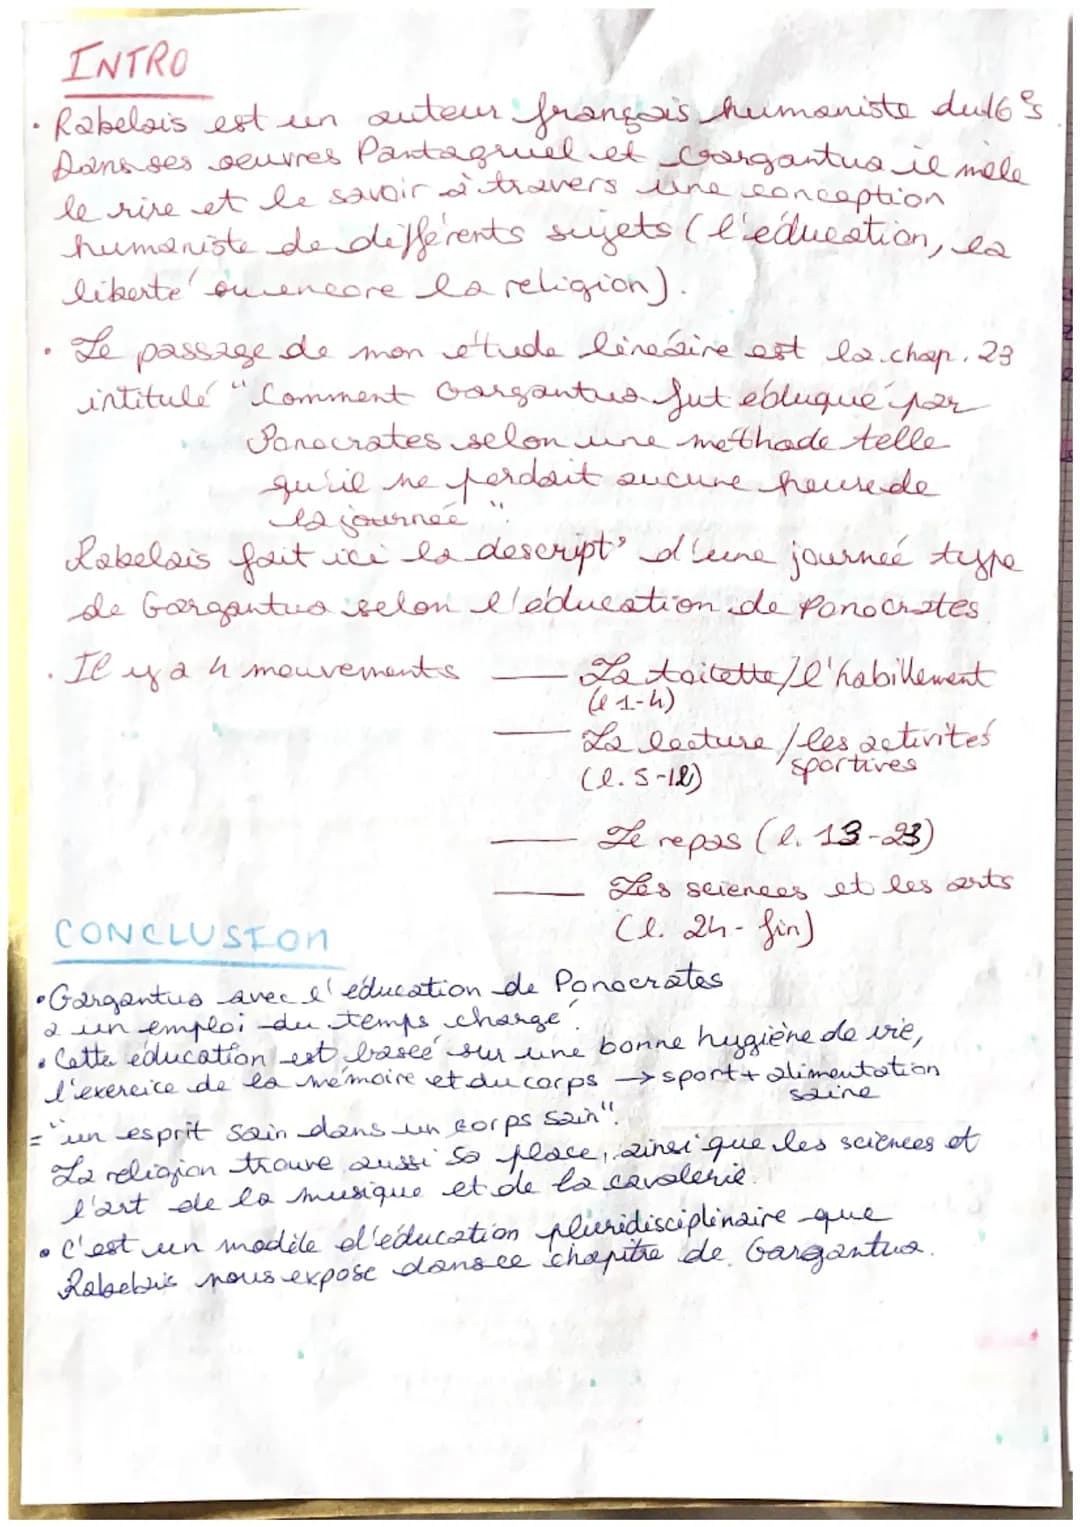 INTRO
• Rabelais est un auteur français humaniste du 16e s
Dans ses oeuvres Pantagruel et Gargantua il mêle
le rire et le savoir à travers une conception
humaniste de différents sujets (l'éducation, la
liberté ou encore la religion).
• Le passage de mon étude linéaire est la chap. 23
intitulé "Comment Gargantua fut éduqué par
Ponocrates selon une méthode telle
qu'il ne perdait aucune heure de
la journée".
Rabelais fait ici la descript° d'une journée type
de Gargantua selon l'éducation de Ponocrates
• Il y a 4 mouvements — La toilette/l'habillement
(l 1-4)
— La lecture / les activités
sportives
(l. 5-12)
— Le repas (l. 13-23)
— Les sciences et les arts
(l. 24 - fin)
CONCLUSION
• Gargantua avec l'éducation de Ponocrates
a un emploi du temps chargé.
• Cette éducation est basée sur une bonne hygiène de vie,
l'exercice de la mémoire et du corps → sport + alimentation
saine
= "un esprit sain dans un corps sain".
La religion trouve aussi sa place, ainsi que les sciences et
l'art de la musique et de la cavalerie.
• C'est un modèle d'éducation pluridisciplinaire que
Rabelais nous expose dans ce chapitre de Gargantua.